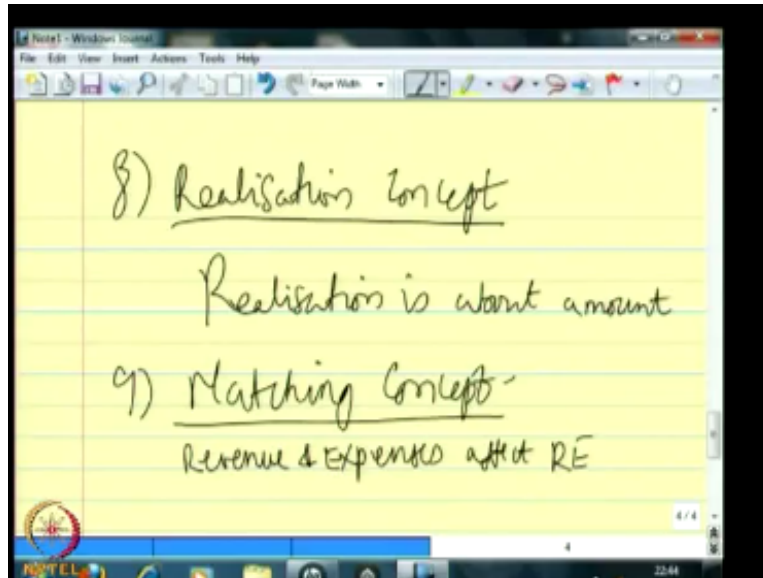 Note1 - Windows Journal
File Edit View Insert Actions Tools Help
Page Width
8) Realisation Concept
Realisation is about amount
9) Matching Concept
Revenue & Expenses affect RE
4/4
4
NPTEL
22:44